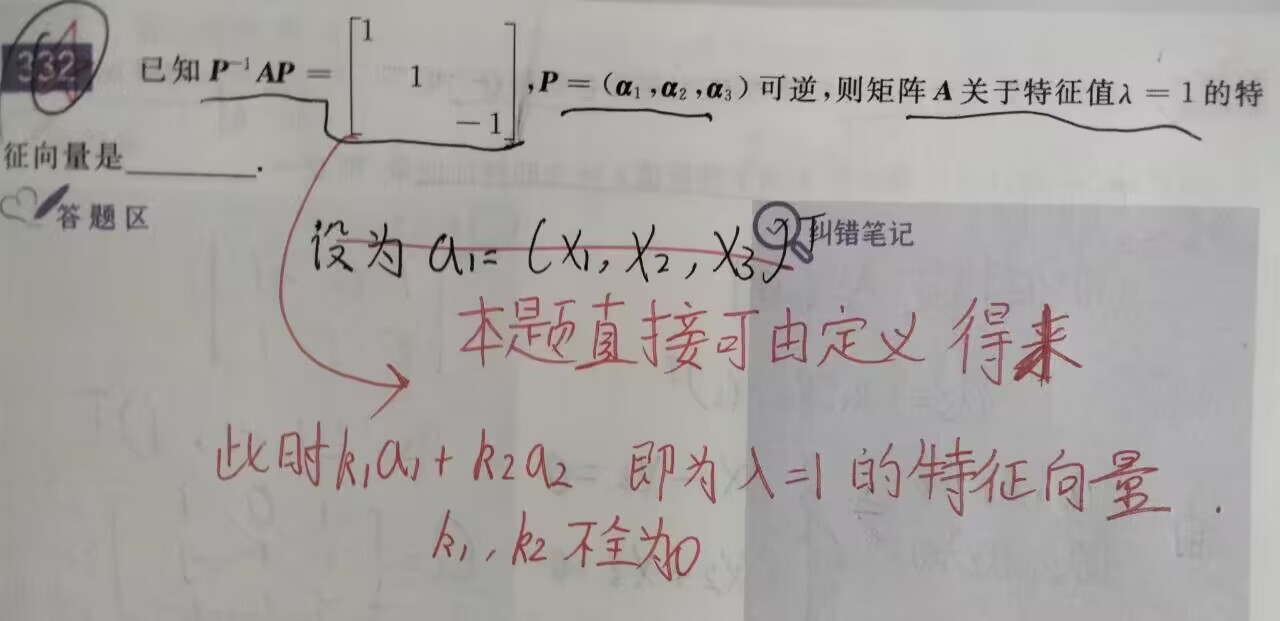 332 已知 P⁻¹AP = [1 1 -1], P = (α₁, α₂, α₃) 可逆, 则矩阵 A 关于特征值 λ = 1 的特
征向量是________.
答题区
纠错笔记
设为 a₁ = (x₁, x₂, x₃)ᵀ
本题直接可由定义 得来
此时 k₁a₁ + k₂a₂ 即为 λ=1 的特征向量.
k₁, k₂ 不全为0